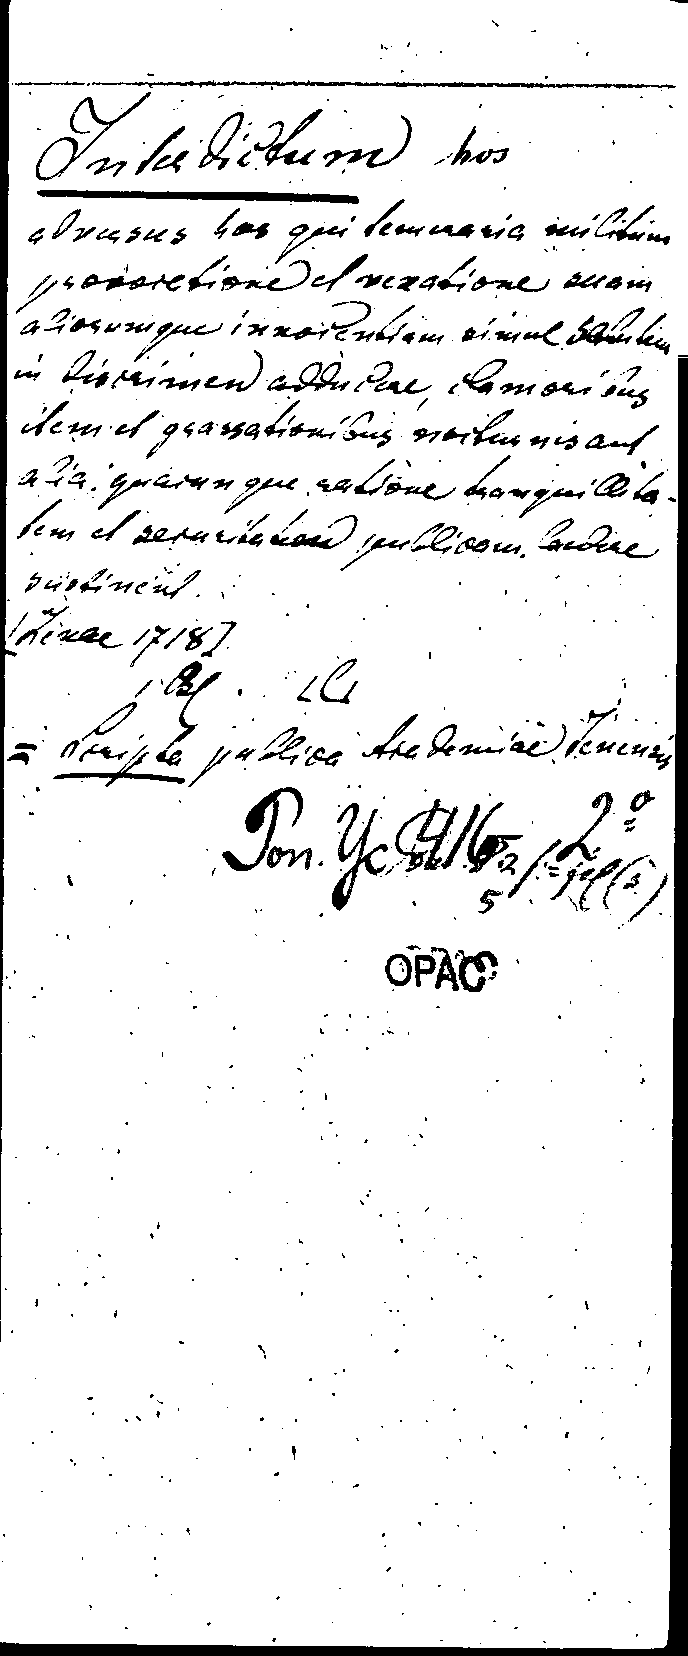 Interdictum hos
adversus hos qui temeraria militum
provocatione et vexatione suam
aliorumque innocentium simul salutem
in discrimen adducere, clamoribus
item et grassationibus nocturnis aut
alia quacunque ratione tranquillita-
tem et securitatem publicam laedere
sustinent.
[Jenae 1718]
1 Bl.
= Scripta publica Academiae Jenensis
2°
5
OPAC